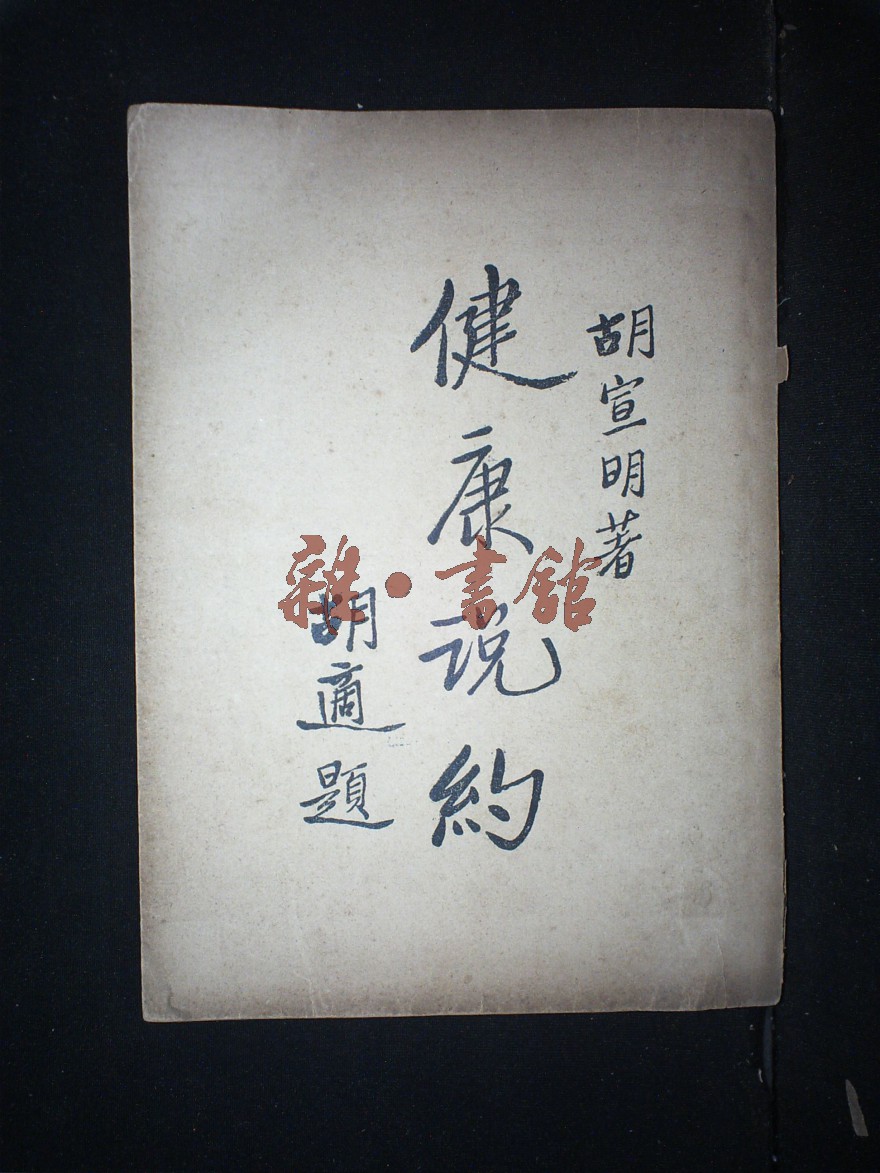 胡宣明著
健康说約
胡適題
雜·書館